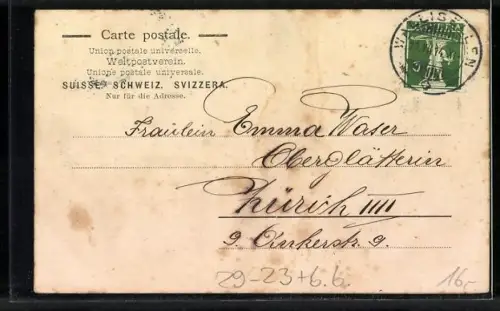 Carte postale.
Union postale universelle.
Weltpostverein.
Unione postale universale.
SUISSE. SCHWEIZ. SVIZZERA.
Nur für die Adresse.
WALLISELLEN
Fräulein Emma Waser
Oberglätterin
Zürich IIII
9. Ankerstr. 9.
29-23+6.6.
16,-